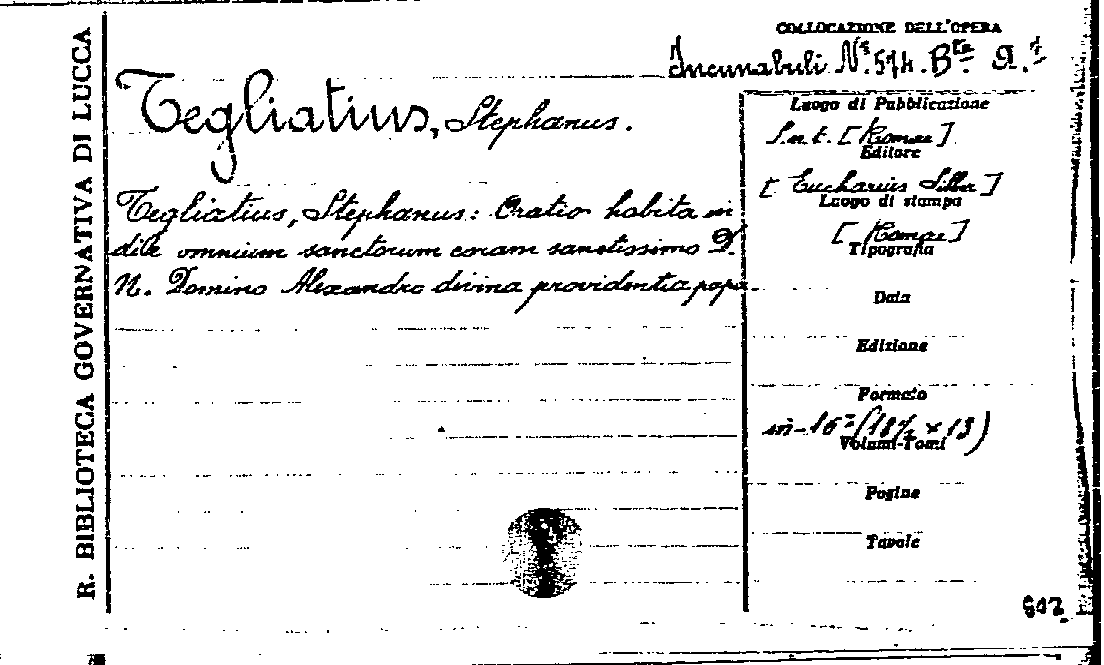 R. BIBLIOTECA GOVERNATIVA DI LUCCA
COLLOCAZIONE DELL'OPERA
Incunabuli Nº. 574. Bta A.
Tegliatius, Stephanus.
Tegliatius, Stephanus: Oratio habita in
die omnium sanctorum coram sanctissimo D.
N. Domino Alexandro divina providentia papa.
Luogo di Pubblicazione
S. n. t. [Romae]
Editore
[Eucharius Silber]
Luogo di stampa
[Romae]
Tipografia
Data
Edizione
Formato
in-16º (18½ × 13)
Volumi-Tomi
Pagine
Tavole